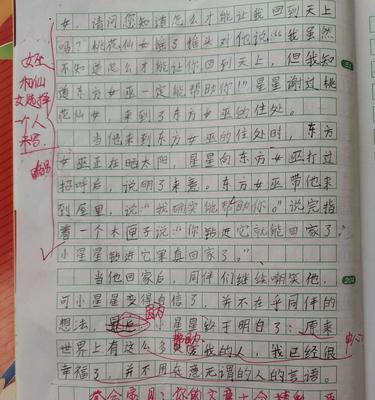 女，请问您知道怎么才能让我回到天上
吗？”桃花仙女摇了摇头对他说“我虽然
不知道怎么才能让你回到天上，但我知
道东方女巫一定能帮助你！”星星谢过桃
花仙女，来到了东方女巫的住处。
当他来到东方女巫的住处时，东方
女巫正在晒太阳，星星向东方女巫打过
招呼后，说明了来意。东方女巫带他来
到屋里，说“我确实能帮助你。”说完指
着一个木匣子说“你钻进它就能回家了。”
小星星钻进它里真回家了。”
当他回家后，同伴们继续嘲笑他，
可小星星变得自信了，并不在乎同伴的
因为
想法，小星星终于明白了：原来
帮助
世界上有这么多爱我的人，我已经很
幸福了，并不用在意无谓的人的言语。
女巫
和仙
女选择
一个人
来写